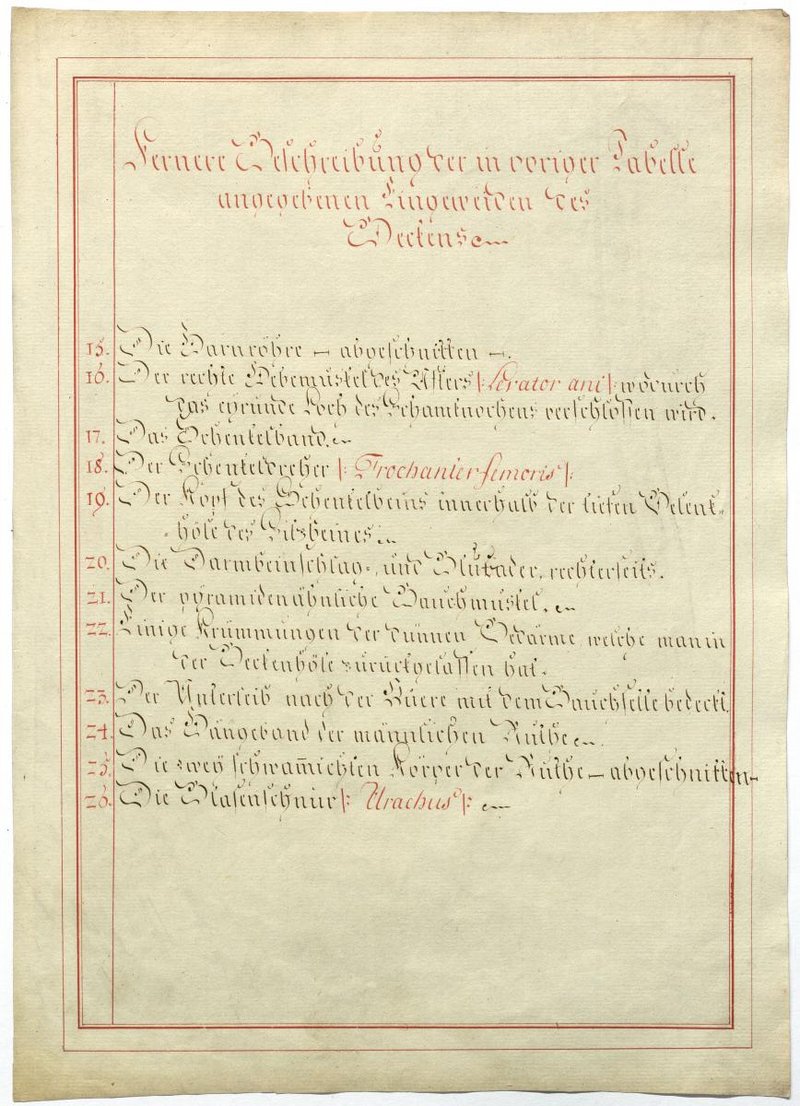 Fernere Beschreibung der in voriger Tabelle
angegebenen Eingeweiden des
Beckens
15. Die Harnröhre – abgeschnitten –.
16. Der rechte Hebemuskel des Afters |: Levator ani :| wodurch
das eyrunde Loch des Schamknochens verschlossen wird.
17. Das Schenkelband.
18. Der Schenkeldreher |: Trochanter femoris :|
19. Der Kopf des Schenkelbeins innerhalb der tiefen Gelenk-
höle des Sitzbeines.
20. Die Darmbeinschlag-, und Blutader, rechterseits.
21. Der pyramidenähnliche Bauchmuskel.
22. Einige Krümmungen der dünnen Gedärme, welche man in
der Beckenhöle zurückgelassen hat.
23. Der Unterleib nach der Quere mit dem Bauchfelle bedeckt.
24. Das Hängeband der männlichen Ruthe.
25. Die zwey schwam̅ichten Körper der Ruthe – abgeschnitten –
26. Die Blasenschnur |: Urachus :|